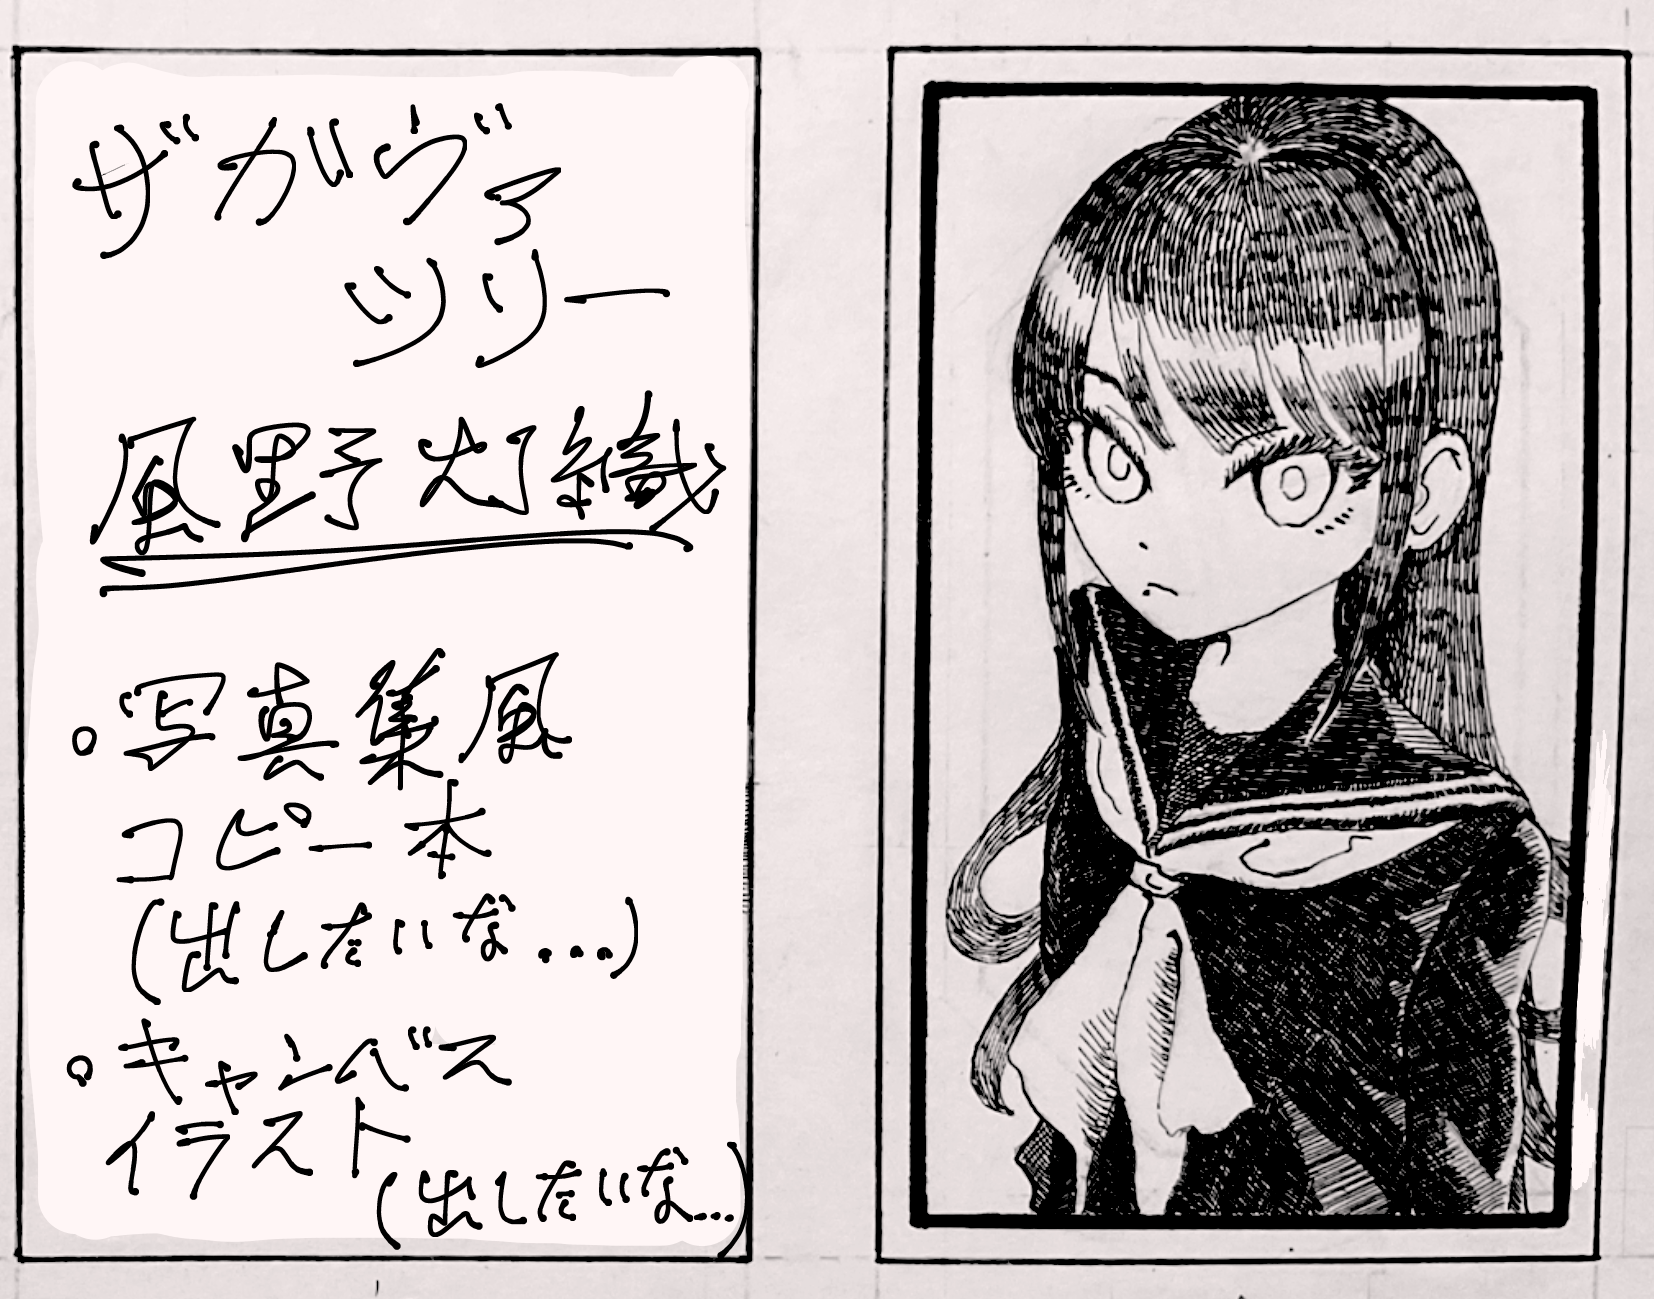 ザガヴァ
ツリー
風野灯織
・写真集風
コピー本
(出したいな...)
・キャンバス
イラスト
(出したいな...)